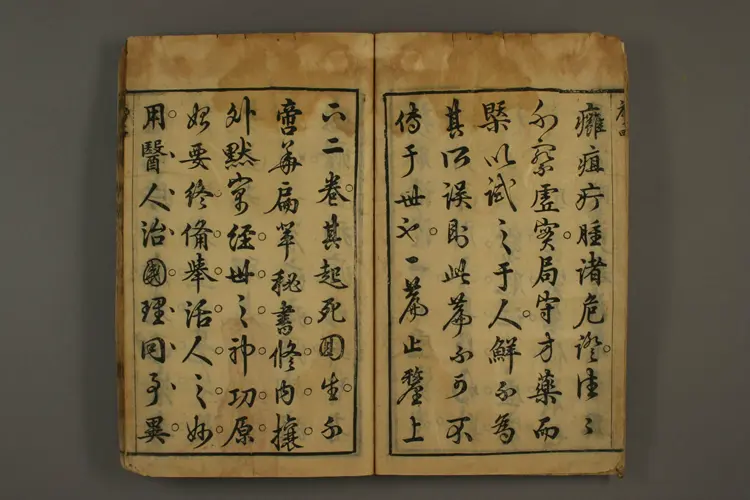 序四
癰疽疔腫諸危證往〻
不察虛實局守方藥而
槩以試之于人鮮不為
其所誤則此篇不可不
傳于世也一篇止釐上
下二卷其起死回生不
啻華扁單秘書修內攘
外默寓經世之神功原
始要終備舉活人之妙
用醫人治國理同事異